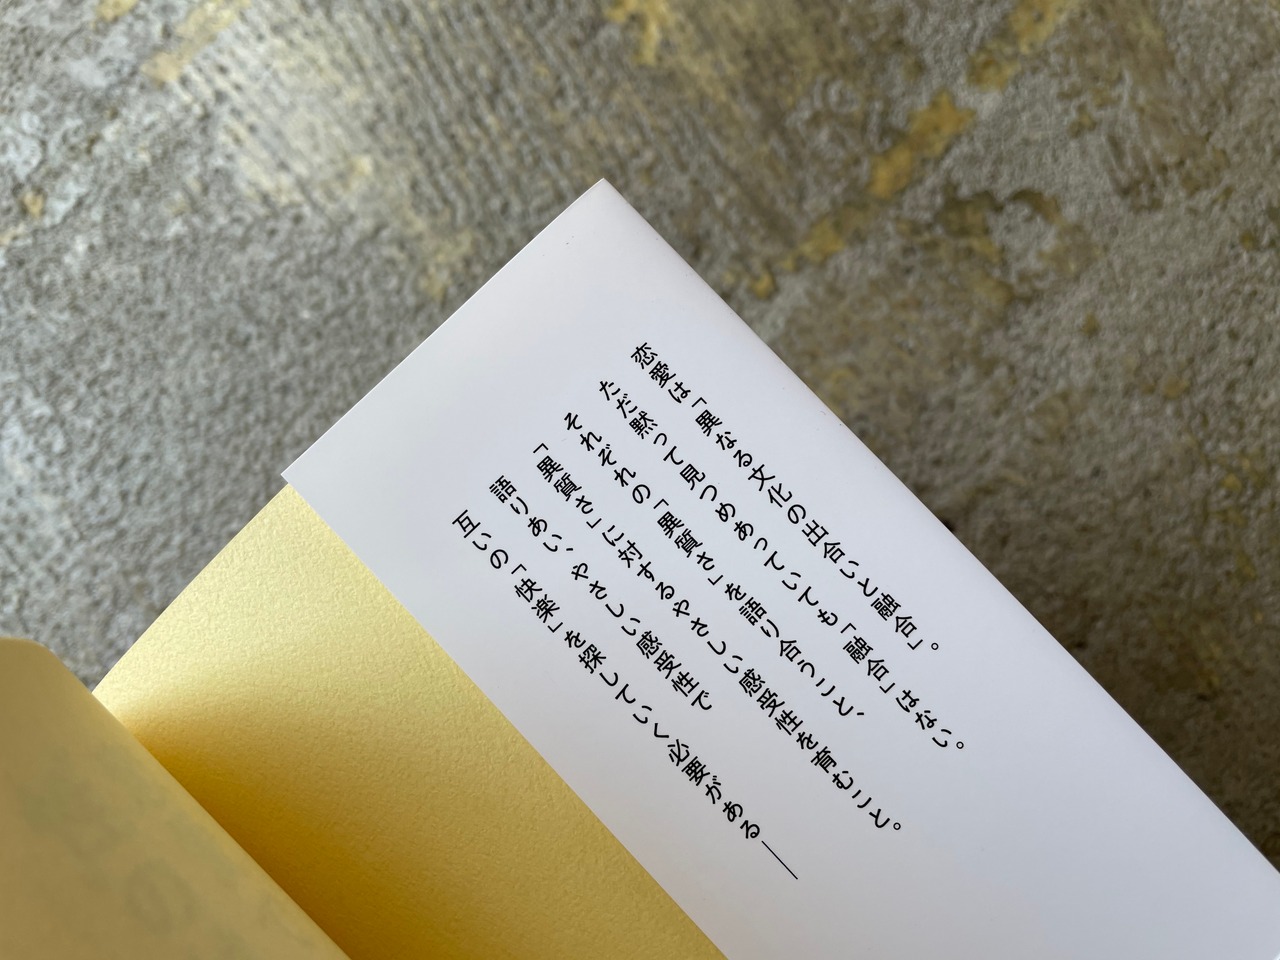 恋愛は「異なる文化の出合いと融合」。
ただ黙って見つめあっていても「融合」はない。
それぞれの「異質さ」を語り合うこと、
「異質さ」に対するやさしい感受性を育むこと。
語りあい、やさしい感受性で
互いの「快楽」を探していく必要がある——